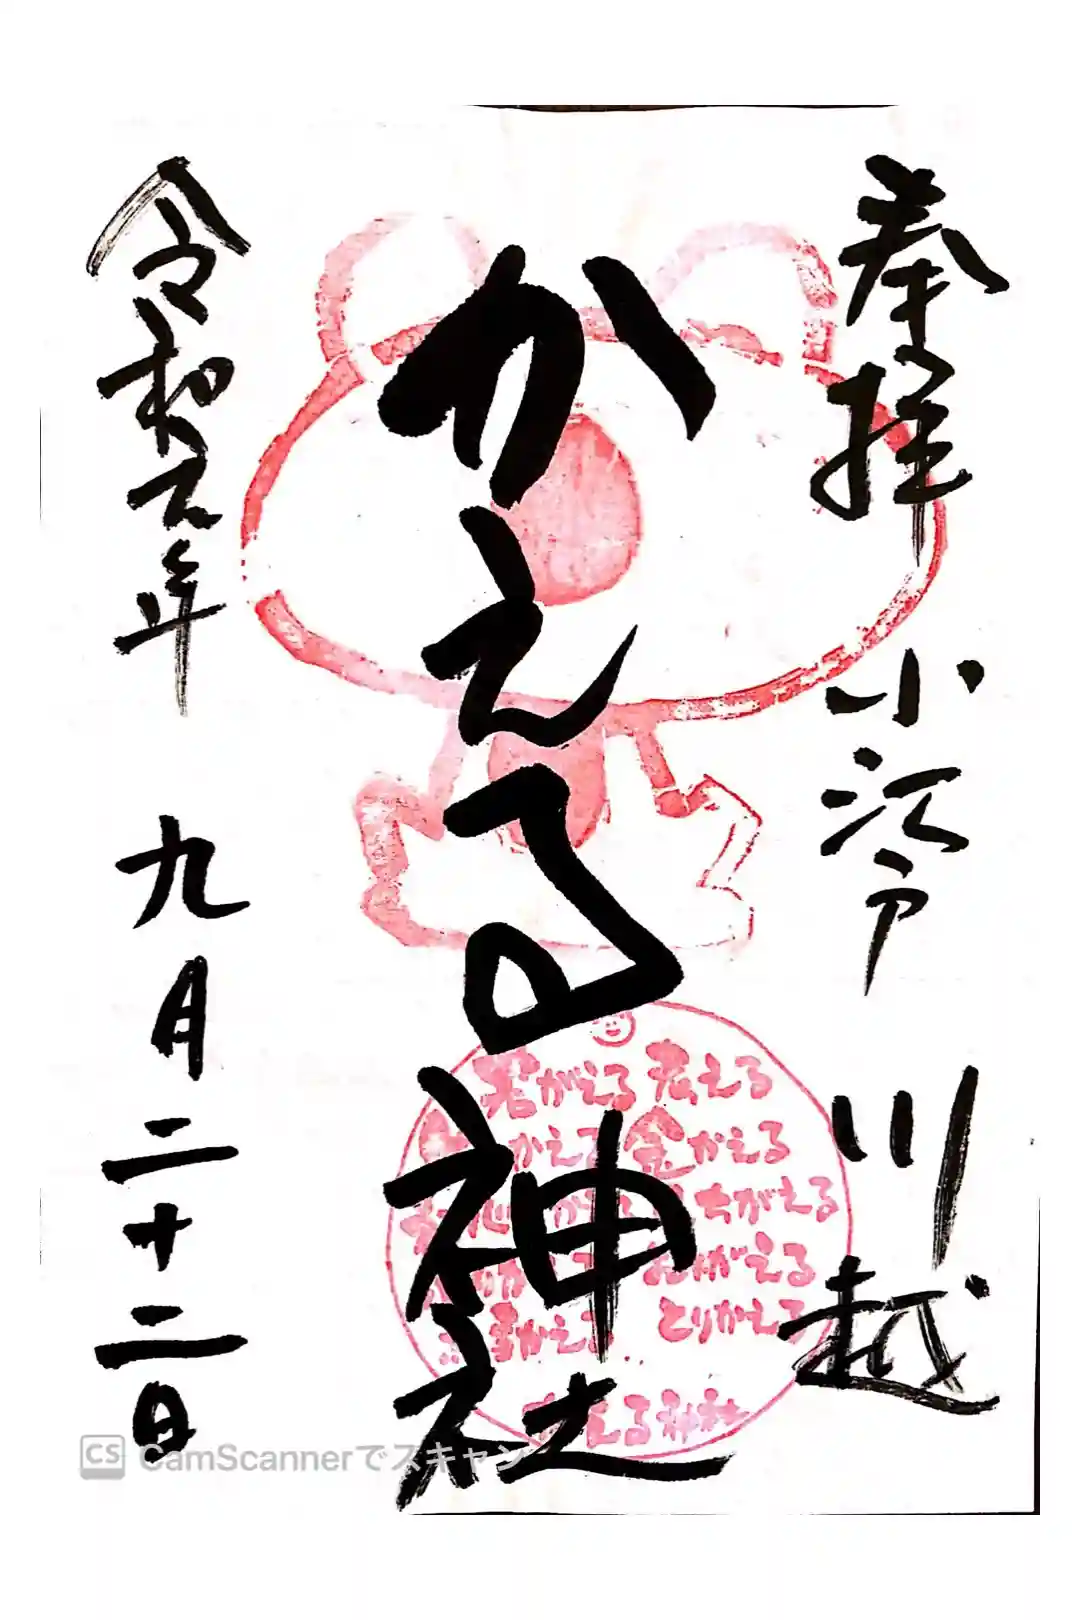 奉拝 小江戸 川越
かえる神社
令和元年 九月二十二日
若がえる 考える
かえる 金かえる
ちがえる
がえる
かえる とりかえる
える神社
CS CamScannerでスキャン